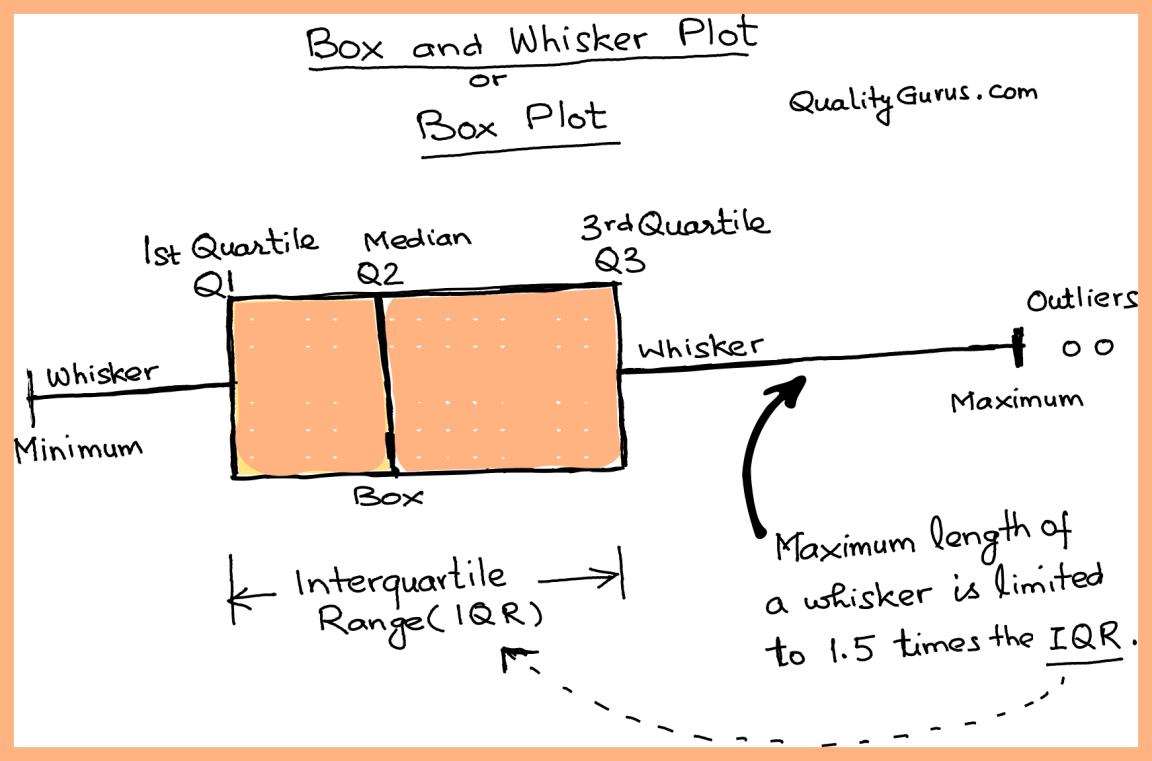 Box and Whisker Plot
or
Box Plot
QualityGurus.com
1st Quartile
Q1
Median
Q2
3rd Quartile
Q3
Outliers
Whisker
Whisker
Minimum
Maximum
Box
Interquartile
Range (IQR)
Maximum length of
a whisker is limited
to 1.5 times the IQR.